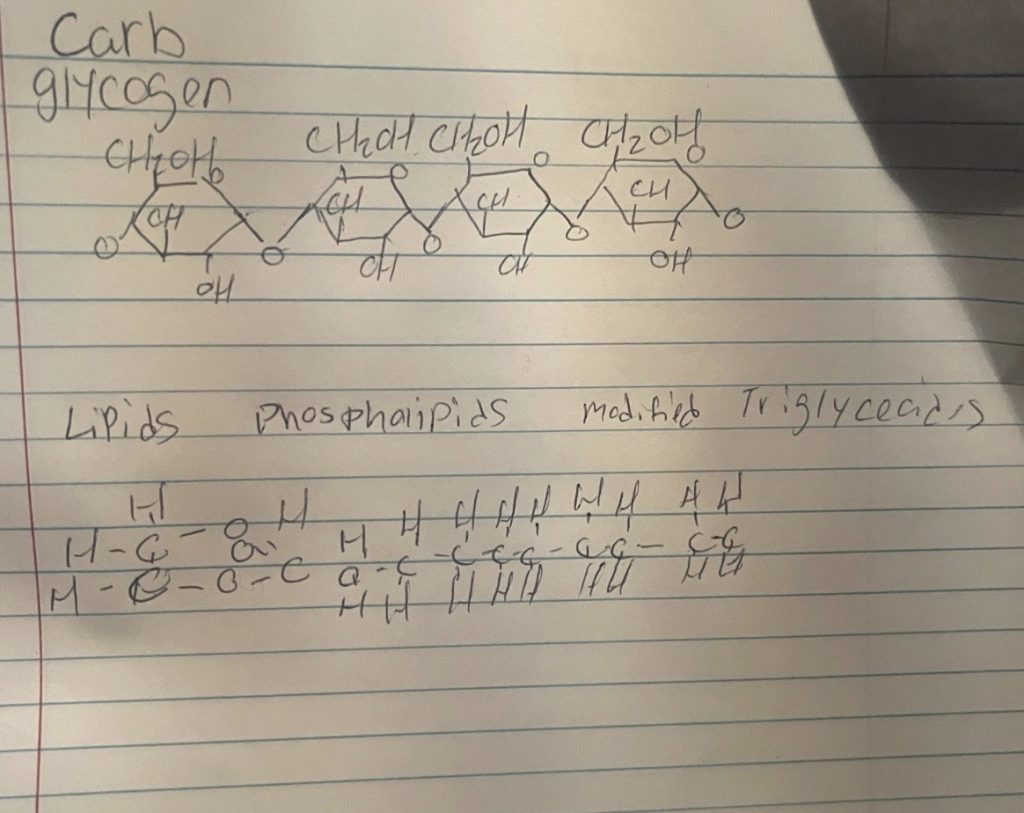 Carb
glycogen
CH2OH CH2OH CH2OH CH2OH
O O O O
CH CH CH CH
O O O O O
OH OH OH OH
Lipids Phosphalipids modified Triglyceads
H H H H H H H H H H H
H-C-O
O
H-C-O-C C-C-C-C-C-C-C-C-C
H H H H H H H H H